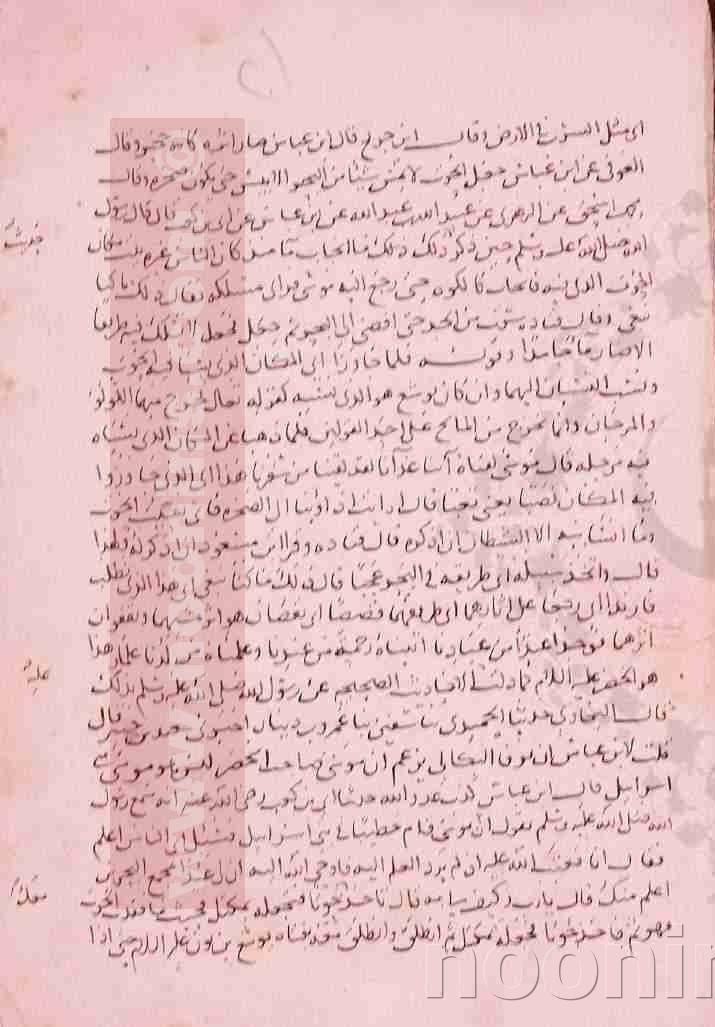 اى مثل السرب فى الارض وقال ابن جريج قال ابن عباس صار اثره كانه حجر وقال
العوفى عن ابن عباس جعل الحوت لا يمس شيئا من البحر الا يبس حتى يكون صخرة وقال
محمد بن اسحق عن الزهرى عن عبيد الله بن عبد الله عن ابن عباس عن ابى بن كعب قال قال رسول
الله صلى الله عليه وسلم حين ذكر ذلك ما انجاب ما منذ كان الناس غيره مكان
الحوت الذى فيه فانجاب كالكوة حتى رجع اليه موسى فراى مسلكه فقال ذلك ما كنا
نبغى وقال قتاده سرب من البحر حتى افضى الى البحر ثم سلك فجعل لا يسلك فيه طريقا
الا صار ما جامدا وقوله فلما جاوزا اى المكان الذى نسيا فيه الحوت
ونسب النسيان اليهما وان كان يوشع هو الذى نسيه كقوله تعالى يخرج منهما اللولو
والمرجان وانما يخرج من المالح على احد القولين فلما ذهبا عن المكان الذى نسياه
فيه مرحله قال موسى لفتاه آتنا غدآنا لقد لقينا من سفرنا هذا اى الذى جاوزوا
فيه المكان نصبا يعنى تعبا قال ارايت اذ اوينا الى الصخره فانى نسيت الحوت
وما انسانيه الا الشيطان ان اذكره قال قتاده وقرا ابن مسعود ان اذكركه ولهذا
قال واتخذ سبيله اى طريقه فى البحر عجبا قال ذلك ما كنا نبغى اى هذا الذى نطلب
فارتدا اى رجعا على اثارهما اى طريقهما قصصا اى يقصان اثر مشيهما ويقفوان
اثرهما فوجدا عبدا من عبادنا اتيناه رحمة من عندنا وعلمناه من لدنا علما وهذا
هو الخضر عليه السلام كما دلت الاحاديث الصحيحه عن رسول الله صلى الله عليه وسلم بذلك
قال البخارى حدثنا الحميدى ثنا سفين ثنا عمرو بن دينار اخبرنى سعيد بن جبير قال
قلت لابن عباس ان نوفا البكالى يزعم ان موسى صاحب الخضر ليس هو موسى بنى
اسرائيل قال ابن عباس كذب عدو الله حدثنا ابى بن كعب رضى الله عنه انه سمع رسول
الله صلى الله عليه وسلم يقول ان موسى قام خطيبا فى بنى اسرائيل فسئل اى الناس اعلم
فقال انا فعتب الله عليه اذ لم يرد العلم اليه فاوحى الله اليه ان لى عبدا بمجمع البحرين
اعلم منك قال يارب وكيف لى به قال تاخذ حوتا فتجعله بمكتل فحيث ما فقدت الحوت
فهو ثم فاخذ حوتا فجعله بمكتل ثم انطلق وانطلق معه بفتاه يوشع بن نون عليه السلام حتى اذا
عليه
معك
noonin